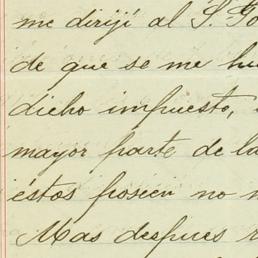 me dirijí al S. Go
de que se me hu
dicho impuesto,
mayor parte de la
éstos posien no
Mas despues